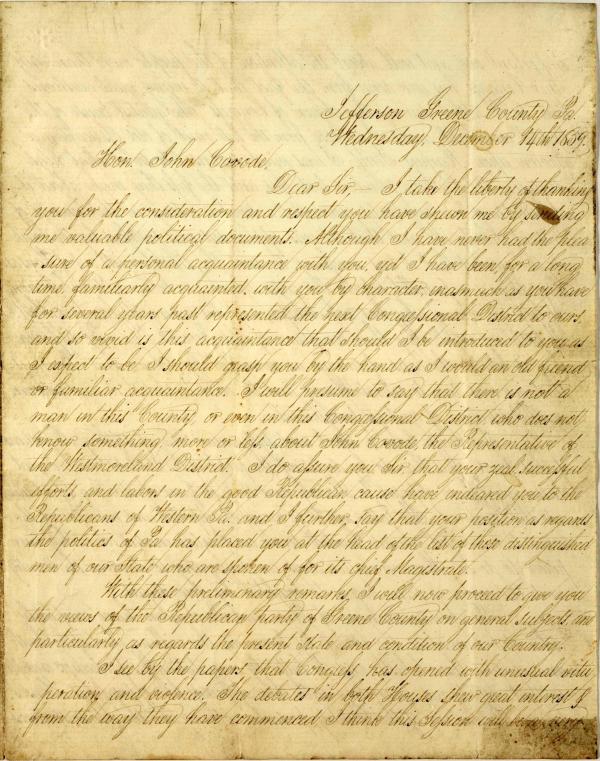 Jefferson Greene County Pa.
Wednesday, December 14th 1859.
Hon. John Covode,
Dear Sir— I take the liberty of thanking
you for the consideration and respect you have shewn me by sending
me valuable political documents. Although I have never had the plea
-sure of a personal acquaintance with you, yet I have been, for a long
time, familiarly acquainted, with you by character, inasmuch as you have
for several years past represented the next Congressional District to ours
and so vivid is this acquaintance that should I be introduced to you, as
I expect to be, I should grasp you by the hand as I would an old friend
or familiar acquaintance. I will presume to say that there is not a
man in this County, or even in this Congessional District who does not
know something more or less about John Covode, the Representative of
the Westmoreland District. I do assure you Sir, that your zeal, successful
efforts, and labors in the good Republican cause have indeared you to the
Republicans of Western Pa. and I further, say that your position as regards
the politics of Pa has placed you at the head of the list of those distinguished
men of our State who are spoken of for its chief Magistrate.
With these preliminary remarks, I will now proceed to give you
the views of the Republican party of Greene County on general subjects, and
particularly, as regards the present State and condition of our Country.
I see by the papers that Congress has opened with unusual vitu
peration, and violence. The debates in both Houses shew great interest &
from the way they have commenced I think this Session will